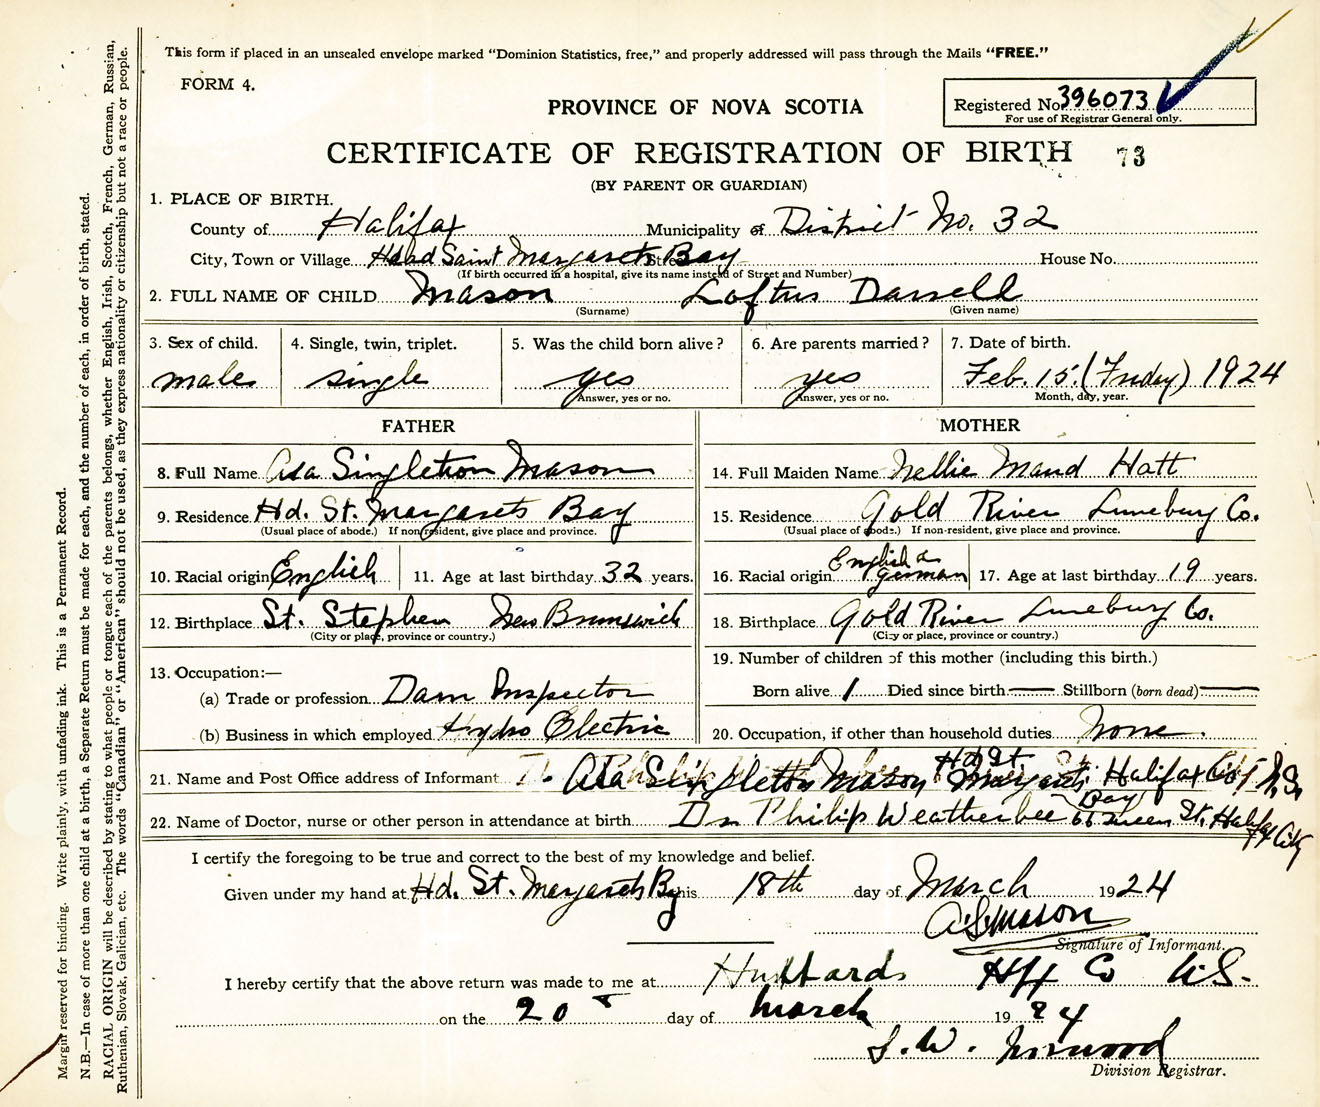 This form if placed in an unsealed envelope marked "Dominion Statistics, free," and properly addressed will pass through the Mails "FREE."
FORM 4.
Registered No. 396073
For use of Registrar General only.
PROVINCE OF NOVA SCOTIA
CERTIFICATE OF REGISTRATION OF BIRTH 73
(BY PARENT OR GUARDIAN)
1. PLACE OF BIRTH.
County of Halifax Municipality of District No. 32
City, Town or Village Head Saint Margarets Bay Street House No.
(If birth occurred in a hospital, give its name instead of Street and Number)
2. FULL NAME OF CHILD Mason Loftus Darrell
(Surname) (Given name)
3. Sex of child. 4. Single, twin, triplet. 5. Was the child born alive? 6. Are parents married? 7. Date of birth.
male single yes yes Feb. 15. (Friday) 1924
Answer, yes or no. Answer, yes or no. Month, day, year.
FATHER
8. Full Name Asa Singleton Mason
9. Residence Hd. St. Margarets Bay
(Usual place of abode.) If non-resident, give place and province.
10. Racial origin English 11. Age at last birthday 32 years.
12. Birthplace St. Stephen New Brunswick
(City or place, province or country.)
13. Occupation:—
(a) Trade or profession Dam Inspector
(b) Business in which employed Hydro Electric
MOTHER
14. Full Maiden Name Nellie Maud Hatt
15. Residence Gold River Lunenburg Co.
(Usual place of abode.) If non-resident, give place and province.
16. Racial origin English & German 17. Age at last birthday 19 years.
18. Birthplace Gold River Lunenburg Co.
(City or place, province or country.)
19. Number of children of this mother (including this birth.)
Born alive 1 Died since birth — Stillborn (born dead) —
20. Occupation, if other than household duties None.
21. Name and Post Office address of Informant Asa Singleton Mason Hd. St. Margarets Bay Halifax Co. N.S.
22. Name of Doctor, nurse or other person in attendance at birth Dr Philip Weatherbee 66 Queen St. Halifax City
I certify the foregoing to be true and correct to the best of my knowledge and belief.
Given under my hand at Hd. St. Margarets Bay this 18th day of March 1924
A S Mason
Signature of Informant.
I hereby certify that the above return was made to me at Hubbards Hfx Co N.S.
on the 20 day of March 1924
Division Registrar.
Margin reserved for binding. Write plainly, with unfading ink. This is a Permanent Record.
N.B.—In case of more than one child at a birth, a Separate Return must be made for each, and the number of each, in order of birth, stated.
RACIAL ORIGIN will be described by stating to what people or tongue each of the parents belongs, whether English, Irish, Scotch, French, German, Russian,
Ruthenian, Slovak, Galician, etc. The words "Canadian" or "American" should not be used, as they express nationality or citizenship but not a race or people.